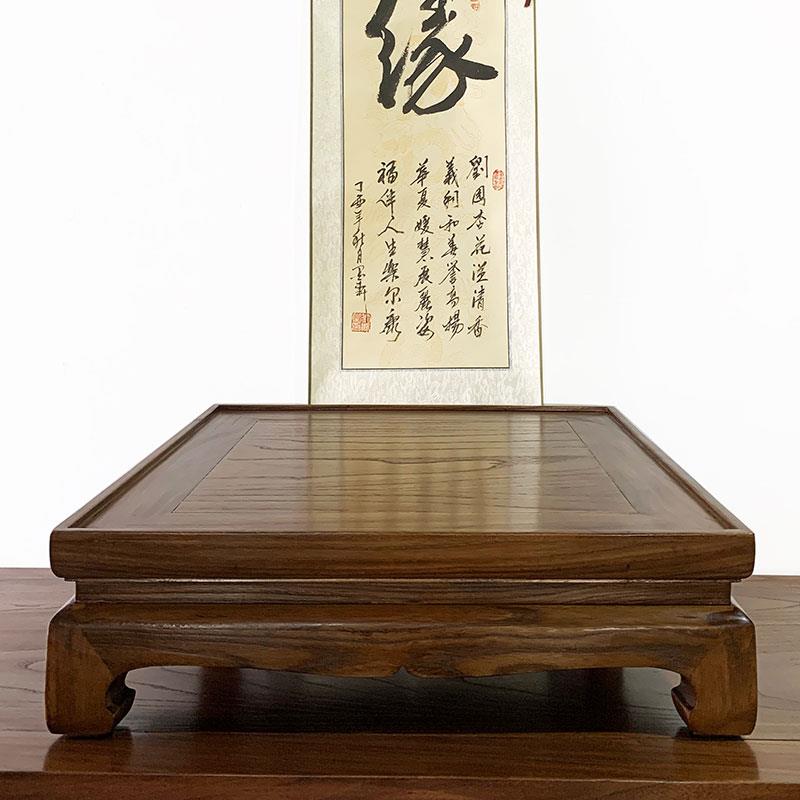 缘
劉国杏花溢清香
義利和善譽高揚
華夏媛慧展麗姿
福伴人生樂尔康
丁酉年秋月墨轩